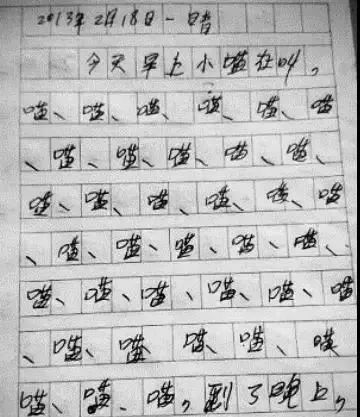 2013年2月18日一晴
今天早上小喵在叫。
喵、喵、喵、喵、喵、喵
、喵、喵、喵、喵、喵、
喵、喵、喵、喵、喵、喵
、喵、喵、喵、喵、喵、
喵、喵、喵、喵、喵、喵
、喵、喵、喵、喵、喵
喵、喵、喵,到了晚上,